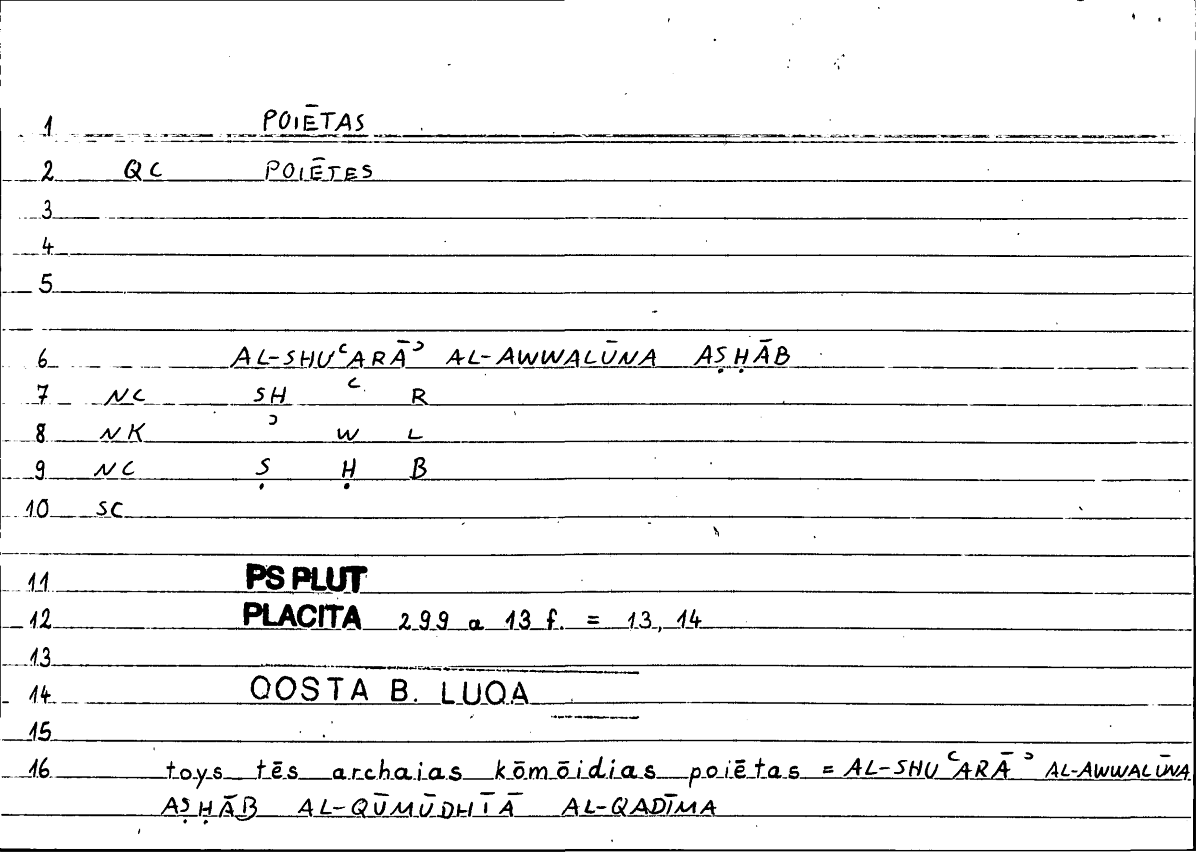 1 POIĒTAS
2 QC POIĒTES
3
4
5
6 AL-SHUʿARĀʾ AL-AWWALŪNA AṢḤĀB
7 NC SH ʿ R
8 NK ʾ W L
9 NC Ṣ Ḥ B
10 SC
11 PS PLUT
12 PLACITA 299 a 13 f. = 13, 14
13
14 QOSTA B. LUQA
15
16 toys tēs archaias kōmōidias poiētas = AL-SHUʿARĀʾ AL-AWWALŪNA
AṢḤĀB AL-QŪMŪDHĪĀ AL-QADĪMA